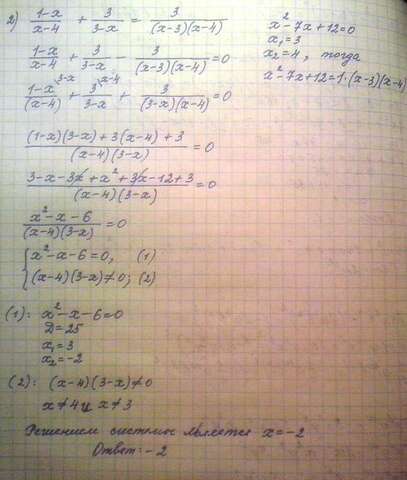 2) (1-x)/(x-4) + 3/(3-x) = 3/((x-3)(x-4))
x²-7x+12=0
x₁=3
x₂=4, тогда
x²-7x+12=1·(x-3)(x-4)
(1-x)/(x-4) + 3/(3-x) - 3/((x-3)(x-4)) = 0
3-x x-4
(1-x)/(x-4) + 3/(3-x) + 3/((3-x)(x-4)) = 0
((1-x)(3-x)+3(x-4)+3)/((x-4)(3-x)) = 0
(3-x-3x+x²+3x-12+3)/((x-4)(3-x)) = 0
(x²-x-6)/((x-4)(3-x)) = 0
{ x²-x-6=0, (1)
(x-4)(3-x)≠0; (2)
(1): x²-x-6=0
D=25
x₁=3
x₂=-2
(2): (x-4)(3-x)≠0
x≠4 и x≠3
Решением системы является x=-2
Ответ: -2